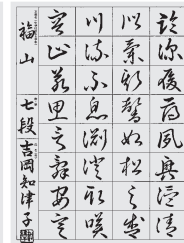 臨深履薄夙興温凊
似蘭斯馨如松之盛
川流不息淵澄取暎
容止若思言辞安定
福山 七段 吉岡知津子